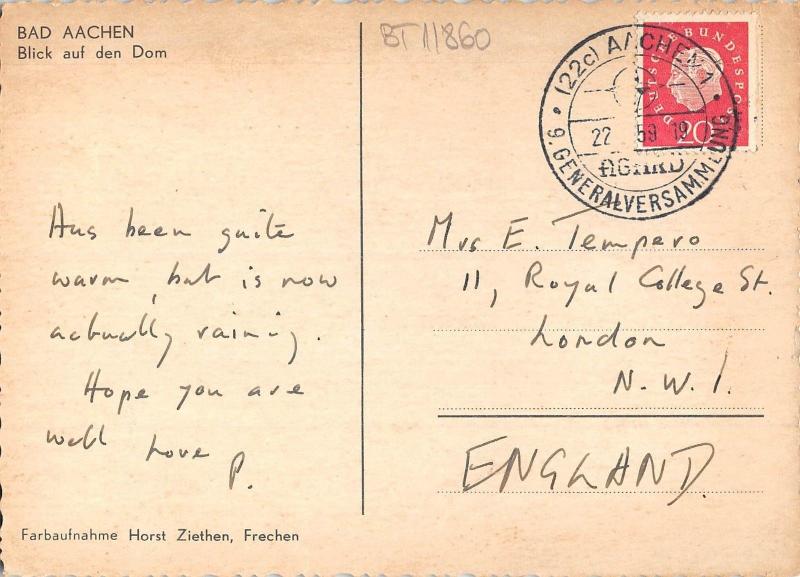 BAD AACHEN
Blick auf den Dom
BT11860
DEUTSCHE BUNDESPOST
20
(22c) AACHEN 1
22 59 19
AGARD
9. GENERALVERSAMMLUNG
Has been quite
warm, but is now
actually raining.
Hope you are
well Love
P.
Mrs E. Tempero
11, Royal College St.
London
N.W.1.
ENGLAND.
Farbaufnahme Horst Ziethen, Frechen